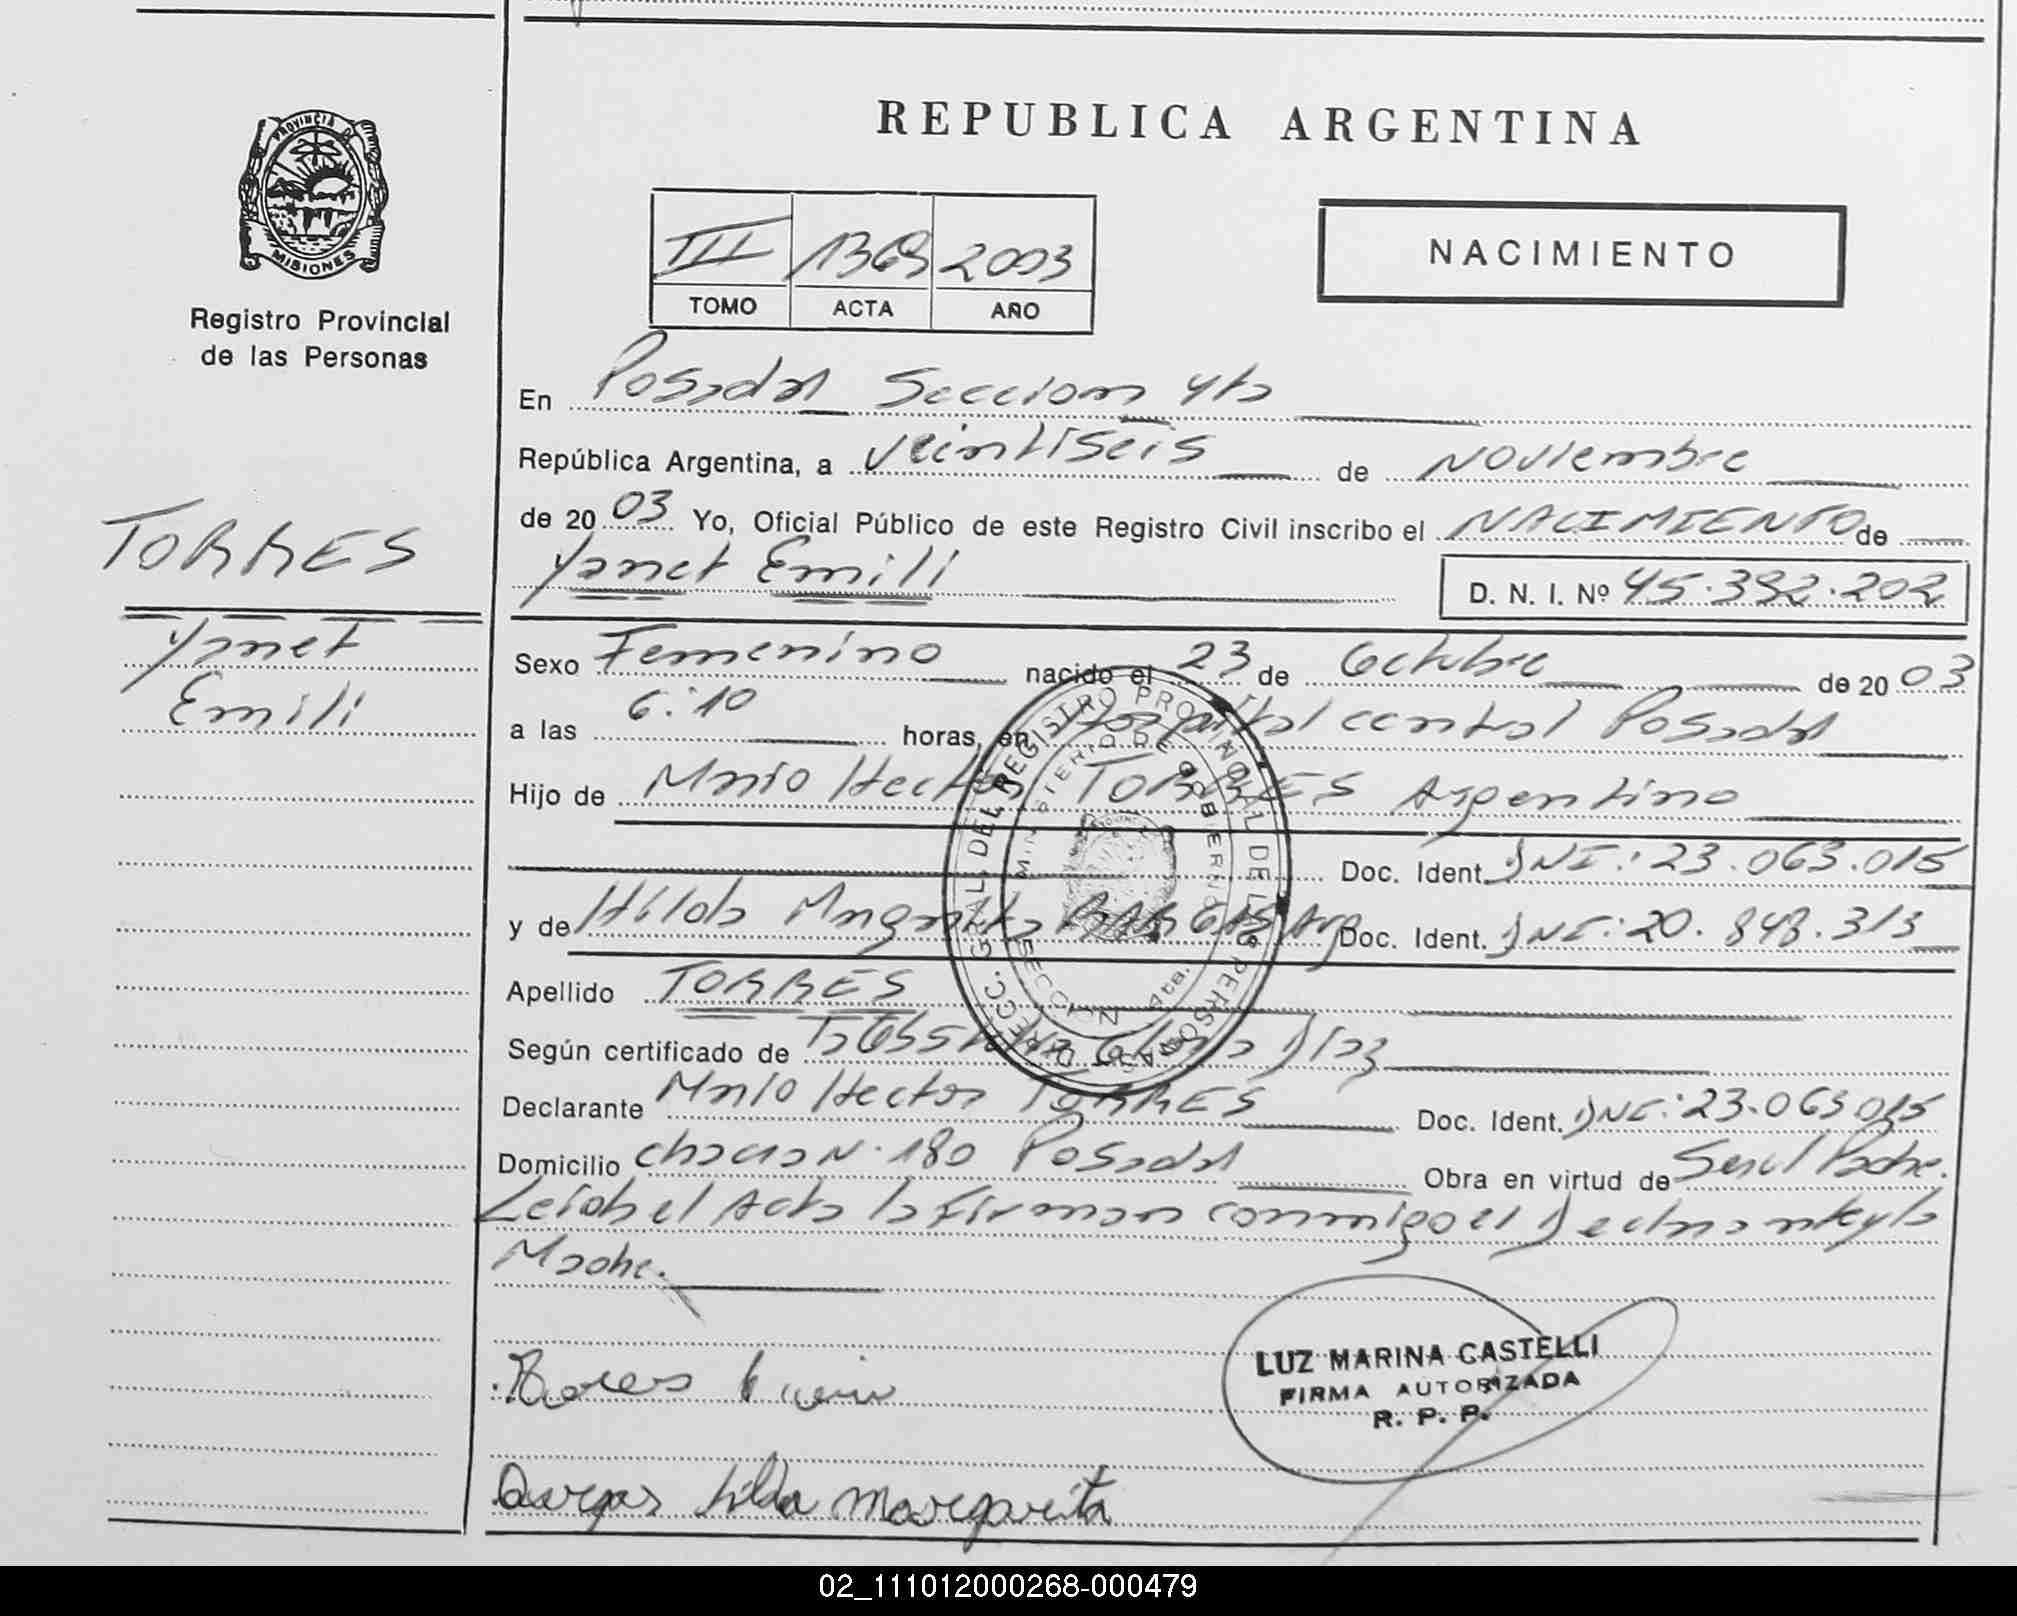 PROVINCIA DE
MISIONES
Registro Provincial
de las Personas
TORRES
Yanet
Emili
REPUBLICA ARGENTINA
NACIMIENTO
III 1369 2003
TOMO ACTA AÑO
En Posadas Seccion 4ta
República Argentina, a veintiseis de Noviembre
de 2003 Yo, Oficial Público de este Registro Civil inscribo el NACIMIENTO de
Yanet Emili D. N. I. Nº 45.392.202
Sexo Femenino nacido el 23 de Octubre de 2003
a las 6:10 horas, en Hospital central Posadas
Hijo de Mario Hector TORRES Argentino
Doc. Ident. DNI: 23.063.015
y de Hilda Margarita Arg Doc. Ident. DNI: 20.848.313
Apellido TORRES
Según certificado de Diaz
Declarante Mario Hector TORRES Doc. Ident. DNI: 23.063.015
Domicilio Chacra N. 180 Posadas Obra en virtud de Ser el Padre.
Leida el Acta la firman conmigo el Declarante y la
Madre.
DIRECC. GRAL. DEL REGISTRO PROVINCIAL DE LAS PERSONAS
MINISTERIO DE GOBIERNO
SECCION 4ta.
LUZ MARINA CASTELLI
FIRMA AUTORIZADA
R. P. P.
hilda margarita
02_111012000268-000479